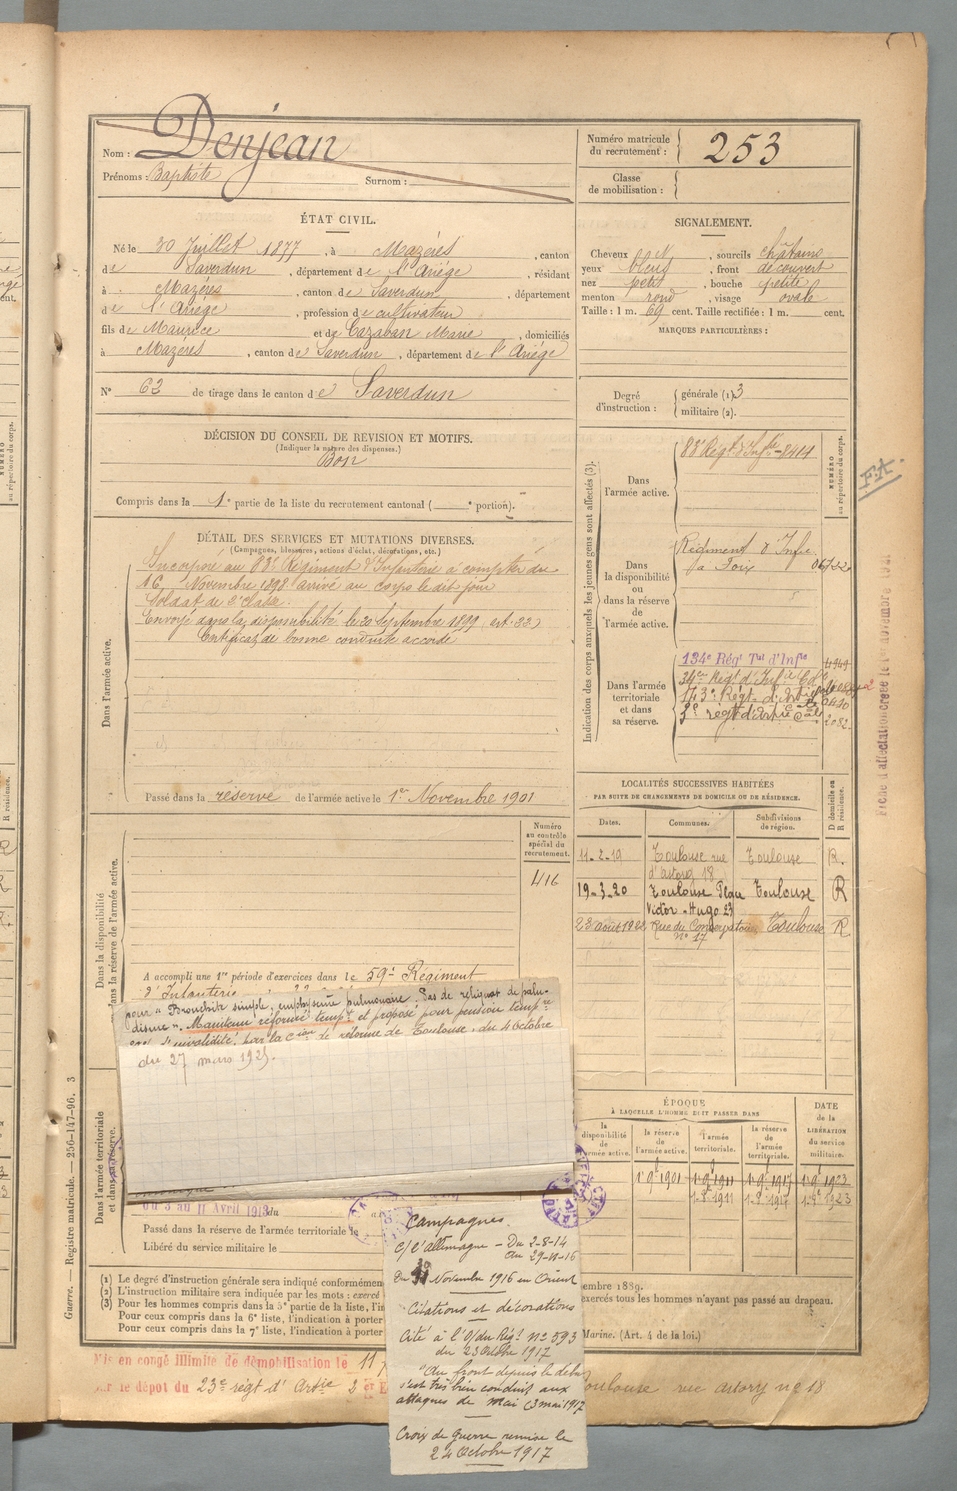 Nom : Denjean
Prénoms : Baptiste Surnom :
Numéro matricule
du recrutement : 253
Classe
de mobilisation :
ÉTAT CIVIL.
Né le 30 Juillet 1877, à Mazéres, canton
de Saverdun, département de l'Ariége, résidant
à Mazéres, canton de Saverdun, département
de l'Ariége, profession de cultivateur
fils de Maurice et de Cazaban Marie, domiciliés
à Mazéres, canton de Saverdun, département de l'Ariége
N° 62 de tirage dans le canton de Saverdun
SIGNALEMENT.
Cheveux, sourcils châtains
yeux bleus, front découvert
nez petit, bouche petite
menton rond, visage ovale
Taille : 1 m. 69 cent. Taille rectifiée : 1 m. cent.
MARQUES PARTICULIÈRES :
Degré
d'instruction :
générale (1) 3
militaire (2).
DÉCISION DU CONSEIL DE RÉVISION ET MOTIFS.
(Indiquer la nature des dispenses.)
Bon
Compris dans la 1e partie de la liste du recrutement cantonal ( e portion).
DÉTAIL DES SERVICES ET MUTATIONS DIVERSES.
(Campagnes, blessures, actions d'éclat, décorations, etc.)
Dans l'armée active.
Incorporé au 83e Régiment d'Infanterie à compter du
16 Novembre 1898 arrivé au corps le dit jour
Soldat de 2e classe.
Envoyé dans la disponibilité le 20 Septembre 1899 (art. 22)
Certificat de bonne conduite accordé
Passé dans la réserve de l'armée active le 1er Novembre 1901
Indication des corps auxquels les jeunes gens sont affectés (3).
NUMÉRO
au répertoire du corps.
Dans
l'armée active.
83e Régt d'Infie 8414
F.A.
Dans
la disponibilité
ou
dans la réserve
de
l'armée active.
Régiment d'Infie
Foix
Dans l'armée
territoriale
et dans
sa réserve.
134e Régt Tal d'Infie
34me Régt d'Infie Cle
143e Régt d'Artie
3e régt d'artie Cale 2082
Fiche d'affectation créée le 1er novembre
LOCALITÉS SUCCESSIVES HABITÉES
PAR SUITE DE CHANGEMENTS DE DOMICILE OU DE RÉSIDENCE.
Dates. Communes. Subdivisions
de région.
D domicile ou
R résidence.
11-2-19 Toulouse rue Toulouse R.
d'astorg 18
19-3-20 Toulouse Place Toulouse R
Victor-Hugo 23
23 août 1922 Rue du Conservatoire Toulouse R
n° 17
Dans la disponibilité
dans la réserve de l'armée active.
Numéro
au contrôle
spécial du
recrutement.
416
A accompli une 1re période d'exercices dans le 59e Régiment
d'Infanterie
pour "Bronchite simple, emphysème pulmonaire. Pas de reliquat de palu-
disme". Maintenu réformé tempre et proposé pour pension tempre
d'invalidité, par la Cion de réforme de Toulouse, du 4 Octobre
du 27 mars 1925.
Dans l'armée territoriale
et dans sa réserve.
ÉPOQUE
À LAQUELLE L'HOMME DOIT PASSER DANS
la
disponibilité
de
l'armée active.
la réserve
de
l'armée active.
l'armée
territoriale.
la réserve
de
l'armée
territoriale.
DATE
de la
LIBÉRATION
du service
militaire.
1.9bre 1901 1.9bre 1911 1.9bre 1917 1.9bre 1923
1.9.1911 1.9.1917 1.9bre 1923
du 3 au 11 Avril 1913 du
Passé dans la réserve de l'armée territoriale le
Libéré du service militaire le
Guerre. — Registre matricule. — 256-147-96. 3
(1) Le degré d'instruction générale sera indiqué conformémen
embre 1889.
(2) L'instruction militaire sera indiquée par les mots : exercé
exercés tous les hommes n'ayant pas passé au drapeau.
(3) Pour les hommes compris dans la 5e partie de la liste, l'in
Pour ceux compris dans la 6e liste, l'indication à porter
Pour ceux compris dans la 7e liste, l'indication à porter
Marine. (Art. 4 de la loi.)
Mis en congé illimité de démobilisation le 11
par le dépôt du 23e régt d'Artie
Toulouse rue astorg n° 18
Campagnes
C/ l'allemagne — Du 2-8-14
au 29-11-16
Du Novembre 1916 en Orient
Citations et décorations
Cité à l'O/ du Régt n° 593
du 23 Octobre 1917
"Au front depuis le début
s'est très bien conduit aux
attaques de mai (3 mai 1917
Croix de Guerre remise le
24 Octobre 1917